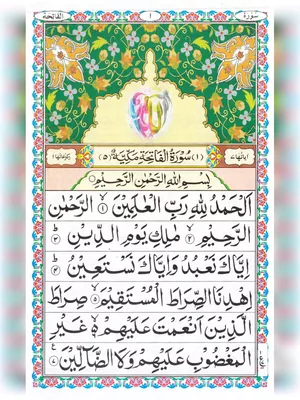 سورة ١ الفاتحة
اٰیاتُهَا ٧ (١) سُوْرَةُ الْفَاتِحَةِ مَكِّيَّةٌ (٥) رُكُوْعُهَا ١
بِسْمِ اللّٰهِ الرَّحْمٰنِ الرَّحِيْمِ
اَلْحَمْدُ لِلّٰهِ رَبِّ الْعٰلَمِيْنَ ۙ﴿١﴾ الرَّحْمٰنِ
الرَّحِيْمِ ۙ﴿٢﴾ مٰلِكِ يَوْمِ الدِّيْنِ ؕ﴿٣﴾
اِيَّاكَ نَعْبُدُ وَاِيَّاكَ نَسْتَعِيْنُ ؕ﴿٤﴾
اِهْدِنَا الصِّرَاطَ الْمُسْتَقِيْمَ ۙ﴿٥﴾ صِرَاطَ
الَّذِيْنَ اَنْعَمْتَ عَلَيْهِمْ ۙ۬﴿٦﴾ غَيْرِ
الْمَغْضُوْبِ عَلَيْهِمْ وَلَا الضَّآلِّيْنَ ﴿٧﴾